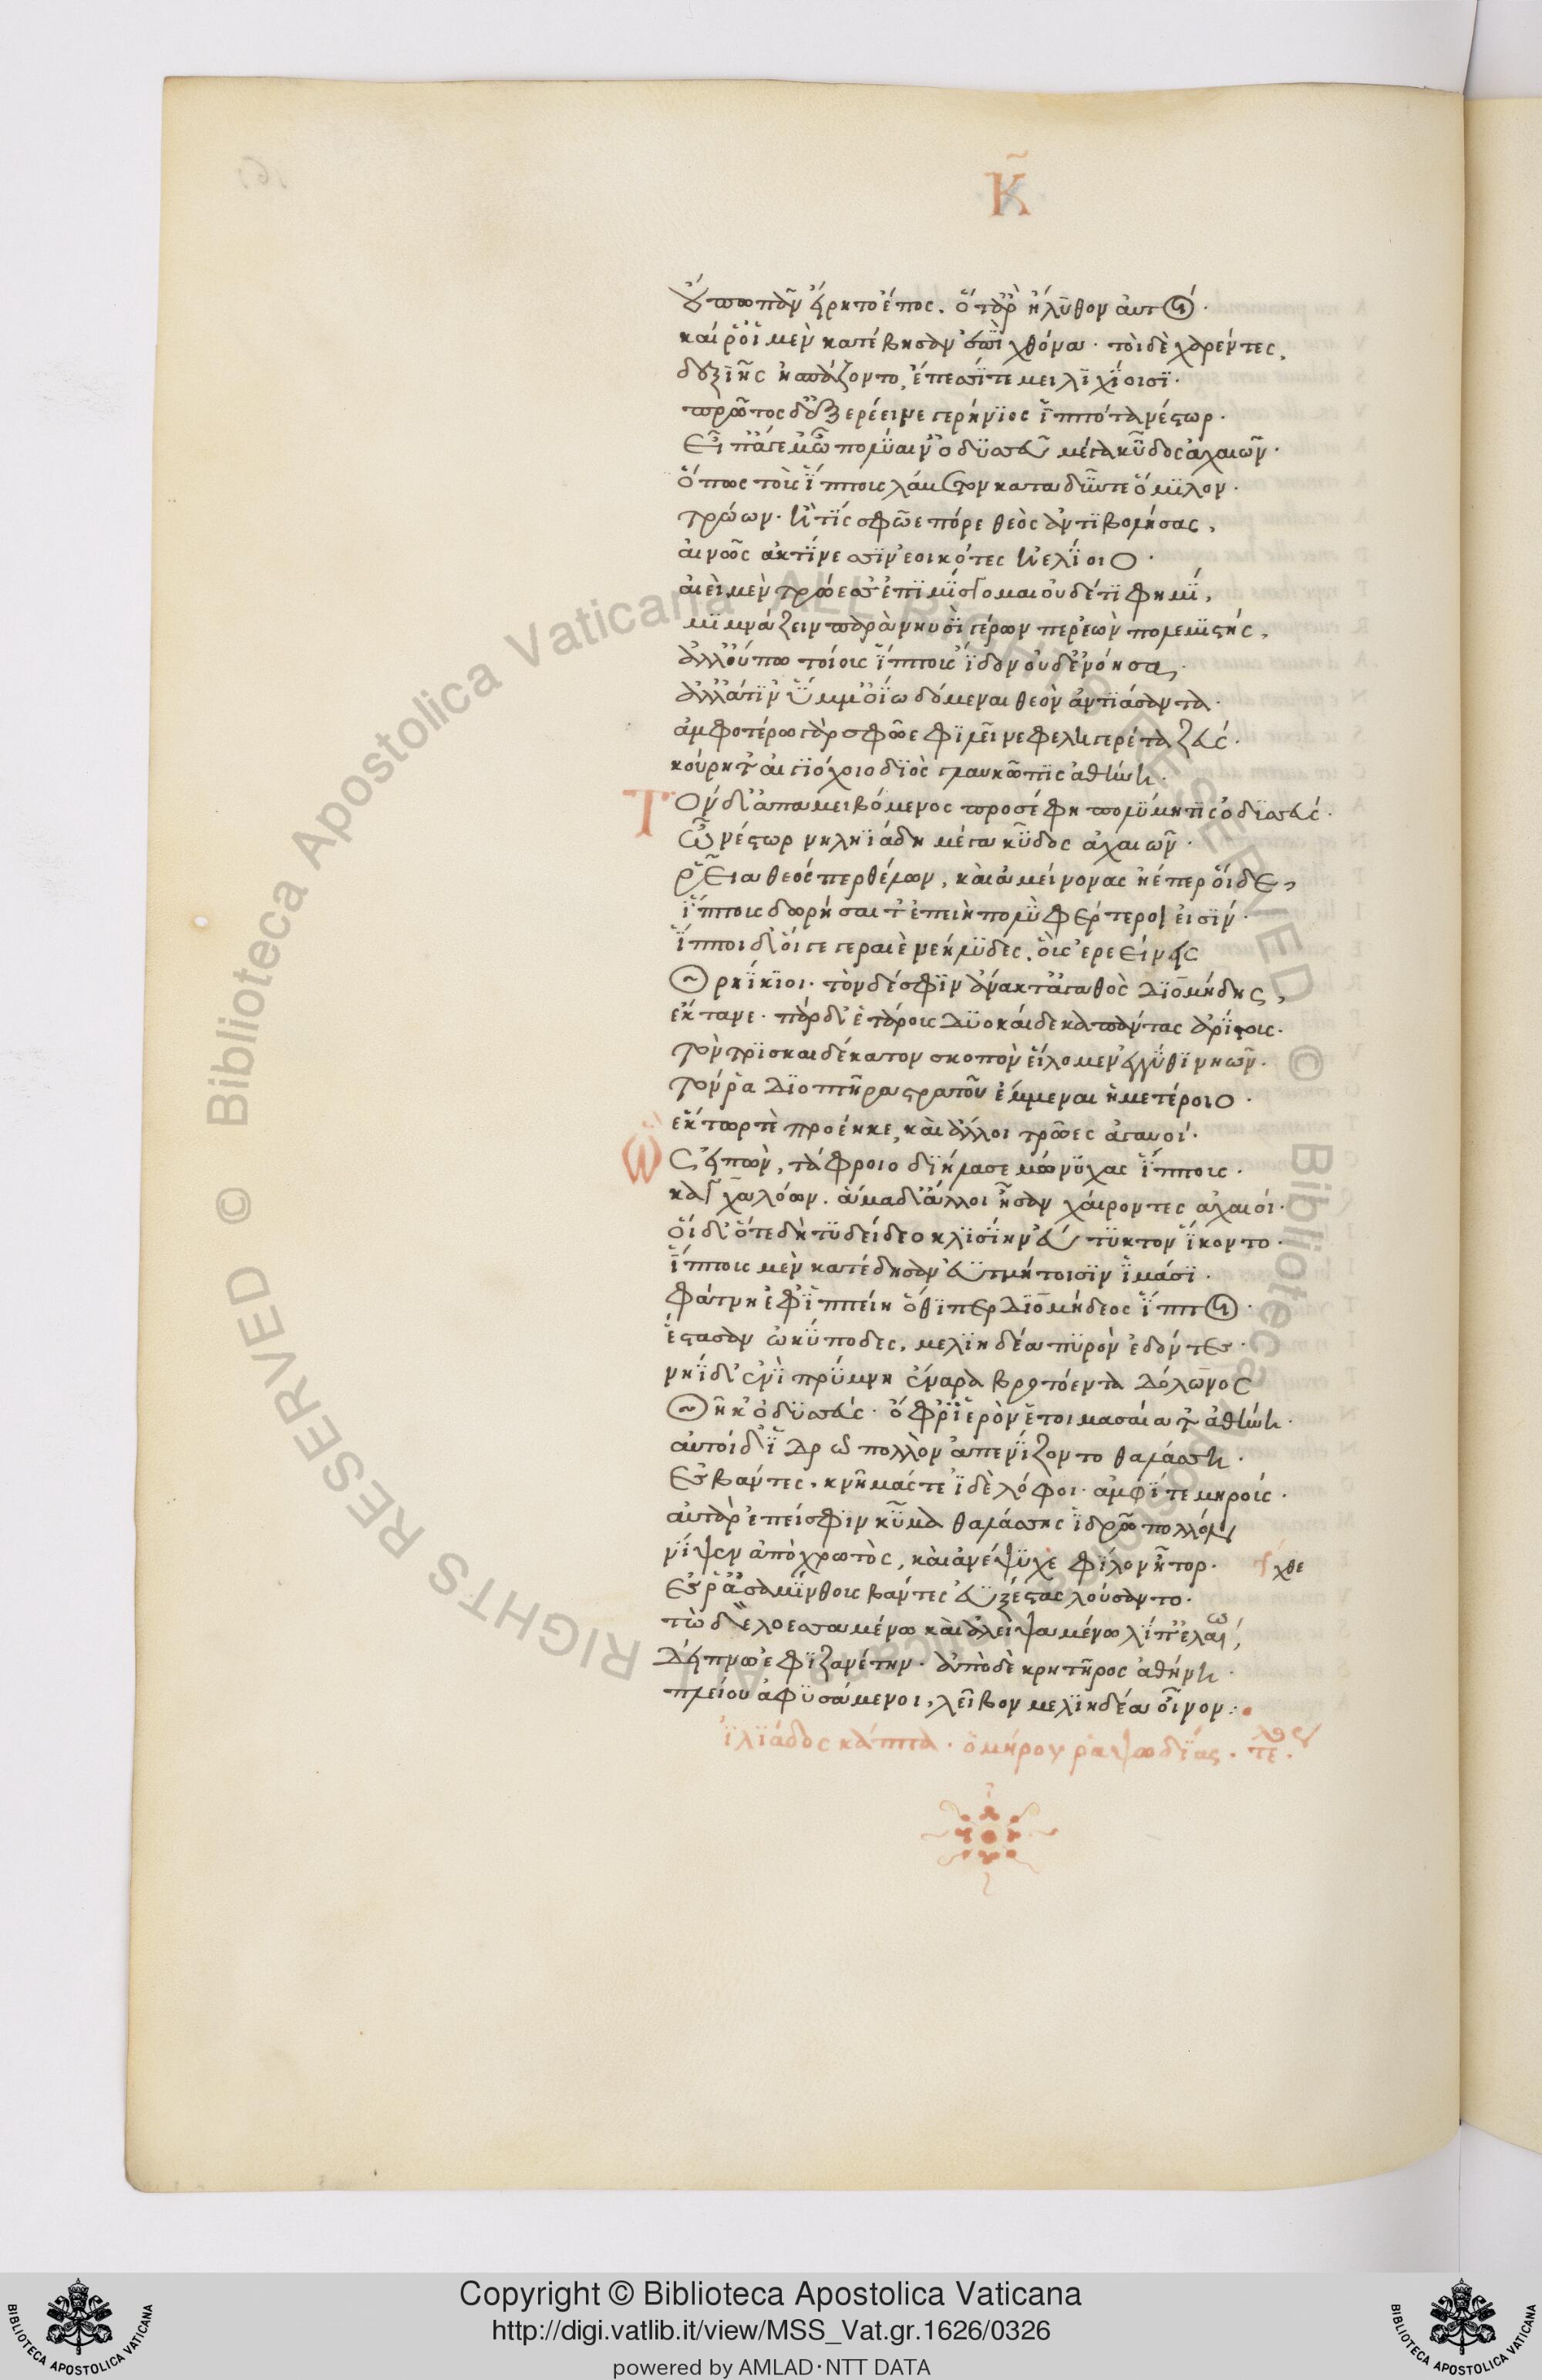 Κ
οὔπω πᾶν εἴρητο ἔπος. ὅτ' ἄρ' ἤλυθον αὐτοί·
καί ῥ' οἱ μὲν κατέβησαν ἐπὶ χθόνα· τοὶ δὲ χαρέντες,
δεξιῇς ἠσπάζοντο, ἔπεσί τε μειλιχίοισι·
πρῶτος δ' ἐξερέεινε γερήνιος ἱππότα νέστωρ·
εἶπ' ἄγε μ' ὦ πολύαιν' ὀδυσεῦ μέγα κῦδος ἀχαιῶν·
ὅπως τούς ἵππους λάβετον καταδῦντε ὅμιλον·
τρώων· ἤ τίς σφῶε πόρε θεὸς ἀντιβολήσας,
αἰνῶς ἀκτίνεσιν ἐοικότες ἠελίοιο·
αἰεὶ μὲν τρώεσσ' ἐπιμίσγομαι οὐδέ τι φημί,
μιμνάζειν παρὰ νηυσὶ γέρων περ ἐὼν πολεμιστής,
ἀλλ' οὔπω τοίους ἵππους ἴδον οὐδ' ἐνόησα,
ἀλλά τιν' ὔμμ' οἴω δόμεναι θεὸν ἀντιάσαντα·
ἀμφοτέρω γὰρ σφῶε φιλεῖ νεφεληγερέτα ζεύς·
κούρη τ' αἰγιόχοιο διὸς γλαυκῶπις ἀθήνη·
Τὸν δ' ἀπαμειβόμενος προσέφη πολύμητις ὀδυσεύς·
ὦ νέστωρ νηληϊάδη μέγα κῦδος ἀχαιῶν·
ῥεῖα θεός περ θέλων, καὶ ἀμείνονας ἠέ περ οἵδε,
ἵππους δωρήσαιτ' ἐπειὴ πολὺ φέρτεροί εἰσιν·
ἵπποι δ' οἵ γε γεραιὲ νεήλυδες. οὓς ἐρεείνεις
θρηΐκιοι· τὸν δέ σφιν ἄνακτ' ἀγαθὸς διομήδης,
ἔκτανε· πὰρ δ' ἑτάρους δυοκαίδεκα πάντας ἀρίστους·
τὸν τρισκαιδέκατον σκοπὸν εἵλομεν ἐγγύθι νηῶν·
τόν ῥα διοπτῆρα στρατοῦ ἔμμεναι ἡμετέροιο·
ἕκτωρ τὲ προέηκε, καὶ ἄλλοι τρῶες ἀγαυοί·
Ὣς εἰπὼν, τάφροιο διήλασε μώνυχας ἵππους·
καγχαλόων. ἅμα δ' ἄλλοι ἦσαν χαίροντες ἀχαιοί·
οἱ δ' ὅτε δὴ τυδείδεο κλισίην εὔτυκτον ἵκοντο·
ἵππους μὲν κατέδησαν ἐϋτμήτοισιν ἱμᾶσι·
φάτνη ἐφ' ἱππείη ὅθι περ διομήδεος ἵπποι·
ἕστασαν ὠκύποδες, μελιηδέα πυρὸν ἔδοντες·
νηῒ δ' ἐνὶ πρύμνη ἔναρα βροτόεντα δόλωνος
θῆκ' ὀδυσεύς· ὄφρ' ἱερὸν ἑτοιμασαίατ' ἀθήνη·
αὐτοὶ δ' ἱδρῶ πολλὸν ἀπενίζοντο θαλάσση·
ἐσβάντες, κνήμας τε ἰδὲ λόφον ἀμφί τε μηρούς·
αὐτὰρ ἐπεί σφιν κῦμα θαλάσσης ἱδρῶ πολλόν
νίψεν ἀπὸ χρωτὸς, καὶ ἀνέψυχε φίλον ἦτορ· χθε
ἔς ῥ' ἀσαμίνθους βάντες ἐϋξέστας λούσαντο·
τὼ δὲ λοεσσαμένω καὶ ἀλειψαμένω λίπ' ἐλαίῳ,
δείπνω ἐφιζανέτην· ἀπὸ δὲ κρητῆρος ἀθήνη·
πλείου ἀφυσάμενοι, λεῖβον μελιηδέα οἶνον:
ἰλιάδος κάππα· ὁμήρου ῥαψωδίας· τέλος
Copyright © Biblioteca Apostolica Vaticana
http://digi.vatlib.it/view/MSS_Vat.gr.1626/0326
powered by AMLAD·NTT DATA
BIBLIOTECA APOSTOLICA VATICANA
BIBLIOTECA APOSTOLICA VATICANA
© Biblioteca Apostolica Vaticana ALL RIGHTS RESERVED © Biblioteca Apostolica Vaticana ALL RIGHTS RESERVED